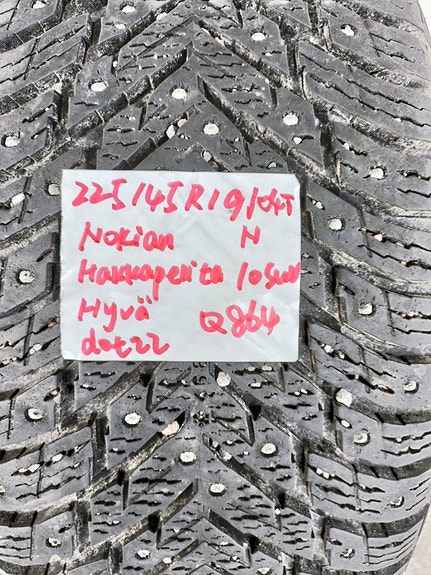 225/45R19/104T
Nokian N
Hakkapelita 10SUV
Hyvä Q864
dot22